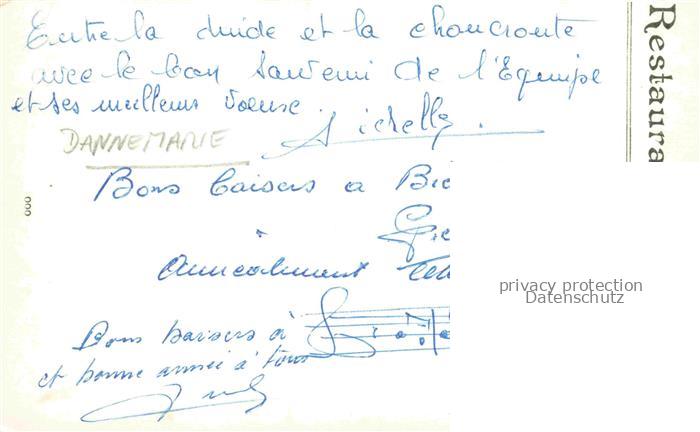 Entre la dinde et la choucroute
avec le bon souvenir de l'Equipe
et ses meilleurs voeux.
DANNEMARIE
Bons baisers a
Amicalement
Bons baisers à
et bonne année à tous
Restaura
privacy protection
Datenschutz